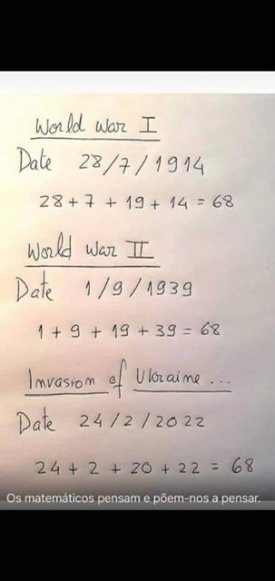 World War I
Date 28/7/1914
28 + 7 + 19 + 14 = 68
World War II
Date 1/9/1939
1 + 9 + 19 + 39 = 68
Invasion of Ukraine ...
Date 24/2/2022
24 + 2 + 20 + 22 = 68
Os matemáticos pensam e põem-nos a pensar.